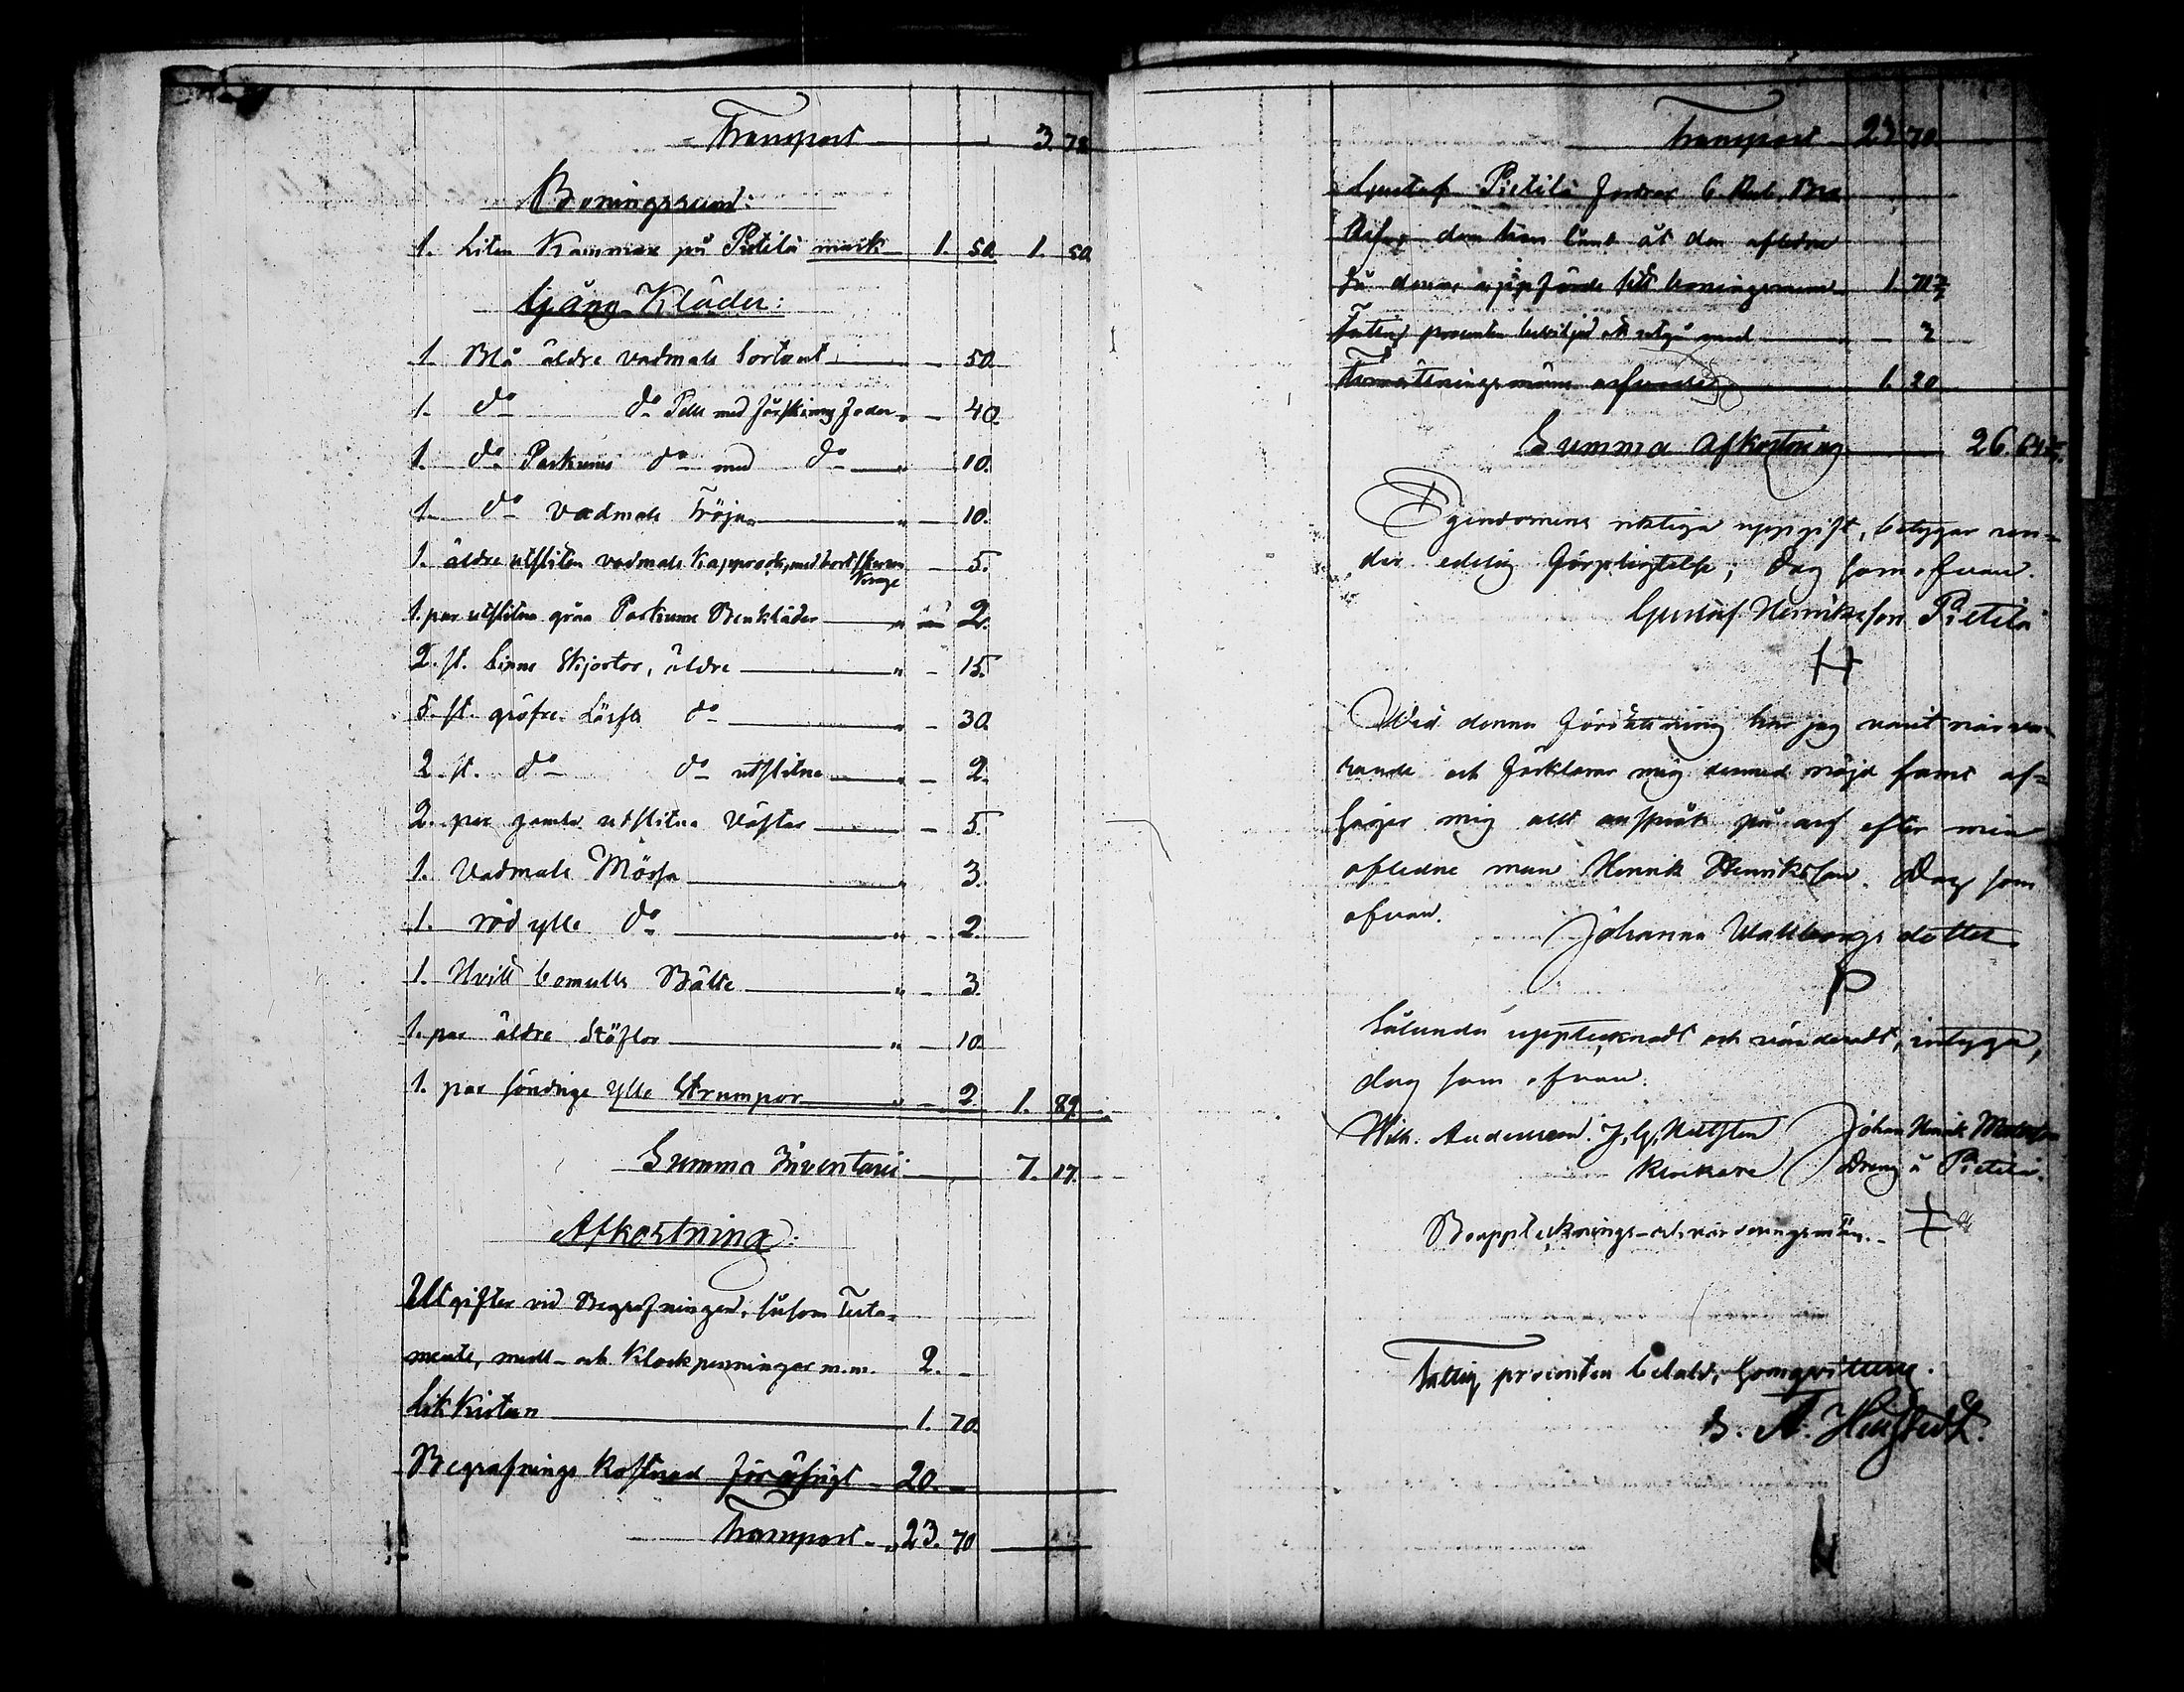 Transport 3. 78
Boningsrum:
1. Liten Kammare på Pietilä mark 1. 50. 1. 50
Gång Kläder:
1. Blå äldre vadmals Sortout 50.
1. do do Pels med fårskinns foder 40.
1. do Parkums do med do 10.
1. do vadmals Tröja 10.
1. äldre utsliten vadmals Kapprock, med bortskuren Krage 5.
1. par utslitna gråa Parkums Benkläder 2.
2. st. linne Skjortor, äldre 15.
5. st. gröfre Lärfts do 30.
2. st. do do utslitna 2.
2. par gamla utslitna Västar 5.
1. Vadmals Mössa 3.
1. röd ylle do 2.
1. Hvitt bomulls Bälte 3.
1. par äldre Stöflor 10.
1. par söndrige ylle Strumpor 2. 1. 89.
Summa Inventarii 7. 17.
Afkortning:
Utgifter vid Begrafningen, såsom Testa-
ments, mull- och Klockpenningar m.m. 2. -
Likkistan 1. 70.
Begrafnings kostnad för öfrigt 20. -
Transport 23. 70
Transport 23. 70.
Gustaf Pietilä fordrar 6. Rub. Bco
Ass. dem han lånt åt den aflidne
då denne uppförde sitt boningsrum 1. 71 3/7
Fattig procenten beviljad att utgå med 3
Förrättningsmännens arfvode 1. 20
Summa Afkortning 26. 64 3/7.
Egendomens riktiga uppgift, betygar un-
der edelig förpligtelse; dag som ofvan.
Gustaf Henriksson Pietilä
Wid denna förrättning har jag varit närva-
rande och förklarar mig dermed nöjd samt af-
säger mig allt anspråk på arf efter min
aflidne man Henrik Henriksson. Dag som
ofvan.
Johanna Wallborgs dotter
Sålunda upptecknadt och värderadt, intyga,
dag som ofvan.
Wilh. Andersson. J. G. Johan Henrik
Klockare Dreng å Pietilä.
Bouppteknings- och värderingsmän.
Fattig procenten betald, som qvitteras.
A.